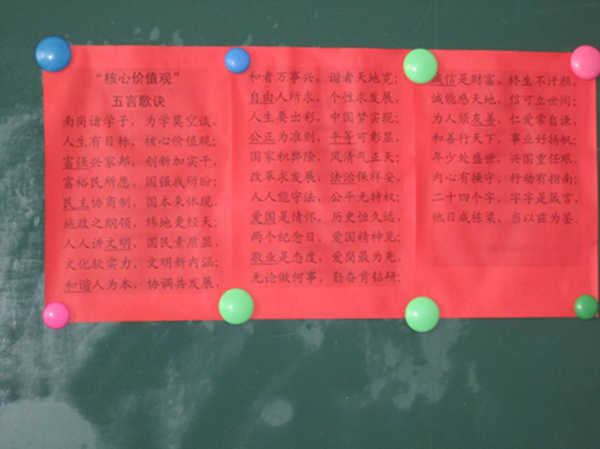 “核心价值观”
五言歌诀
南岗诸学子，为学莫空谈，
人生有目标，核心价值观；
富强兴家邦，创新加实干，
富裕民所愿，国强我所盼；
民主协商制，国本来体现，
施政之纲领，纬地更经天；
人人讲文明，国民素质显，
文化软实力，文明新内涵；
和谐人为本，协调共发展，
和者万事兴，谐者天地宽；
自由人所求，个性求发展，
人生要出彩，中国梦实现；
公正为准则，平等可彰显，
国家积弊除，风清气正天；
改革求发展，法治保祥安，
人人能守法，公平无特权；
爱国是情怀，历史恒久远，
两个纪念日，爱国精神见；
敬业是态度，爱岗最为先，
无论做何事，勤奋肯钻研；
诚信是财富，终生不汗颜，
诚能感天地，信可立世间；
为人须友善，仁爱常自谦，
和善行天下，事业好扬帆；
年少处盛世，兴国重任艰，
内心有操守，行动有指南；
二十四个字，字字是箴言，
他日成栋梁，当以兹为鉴．